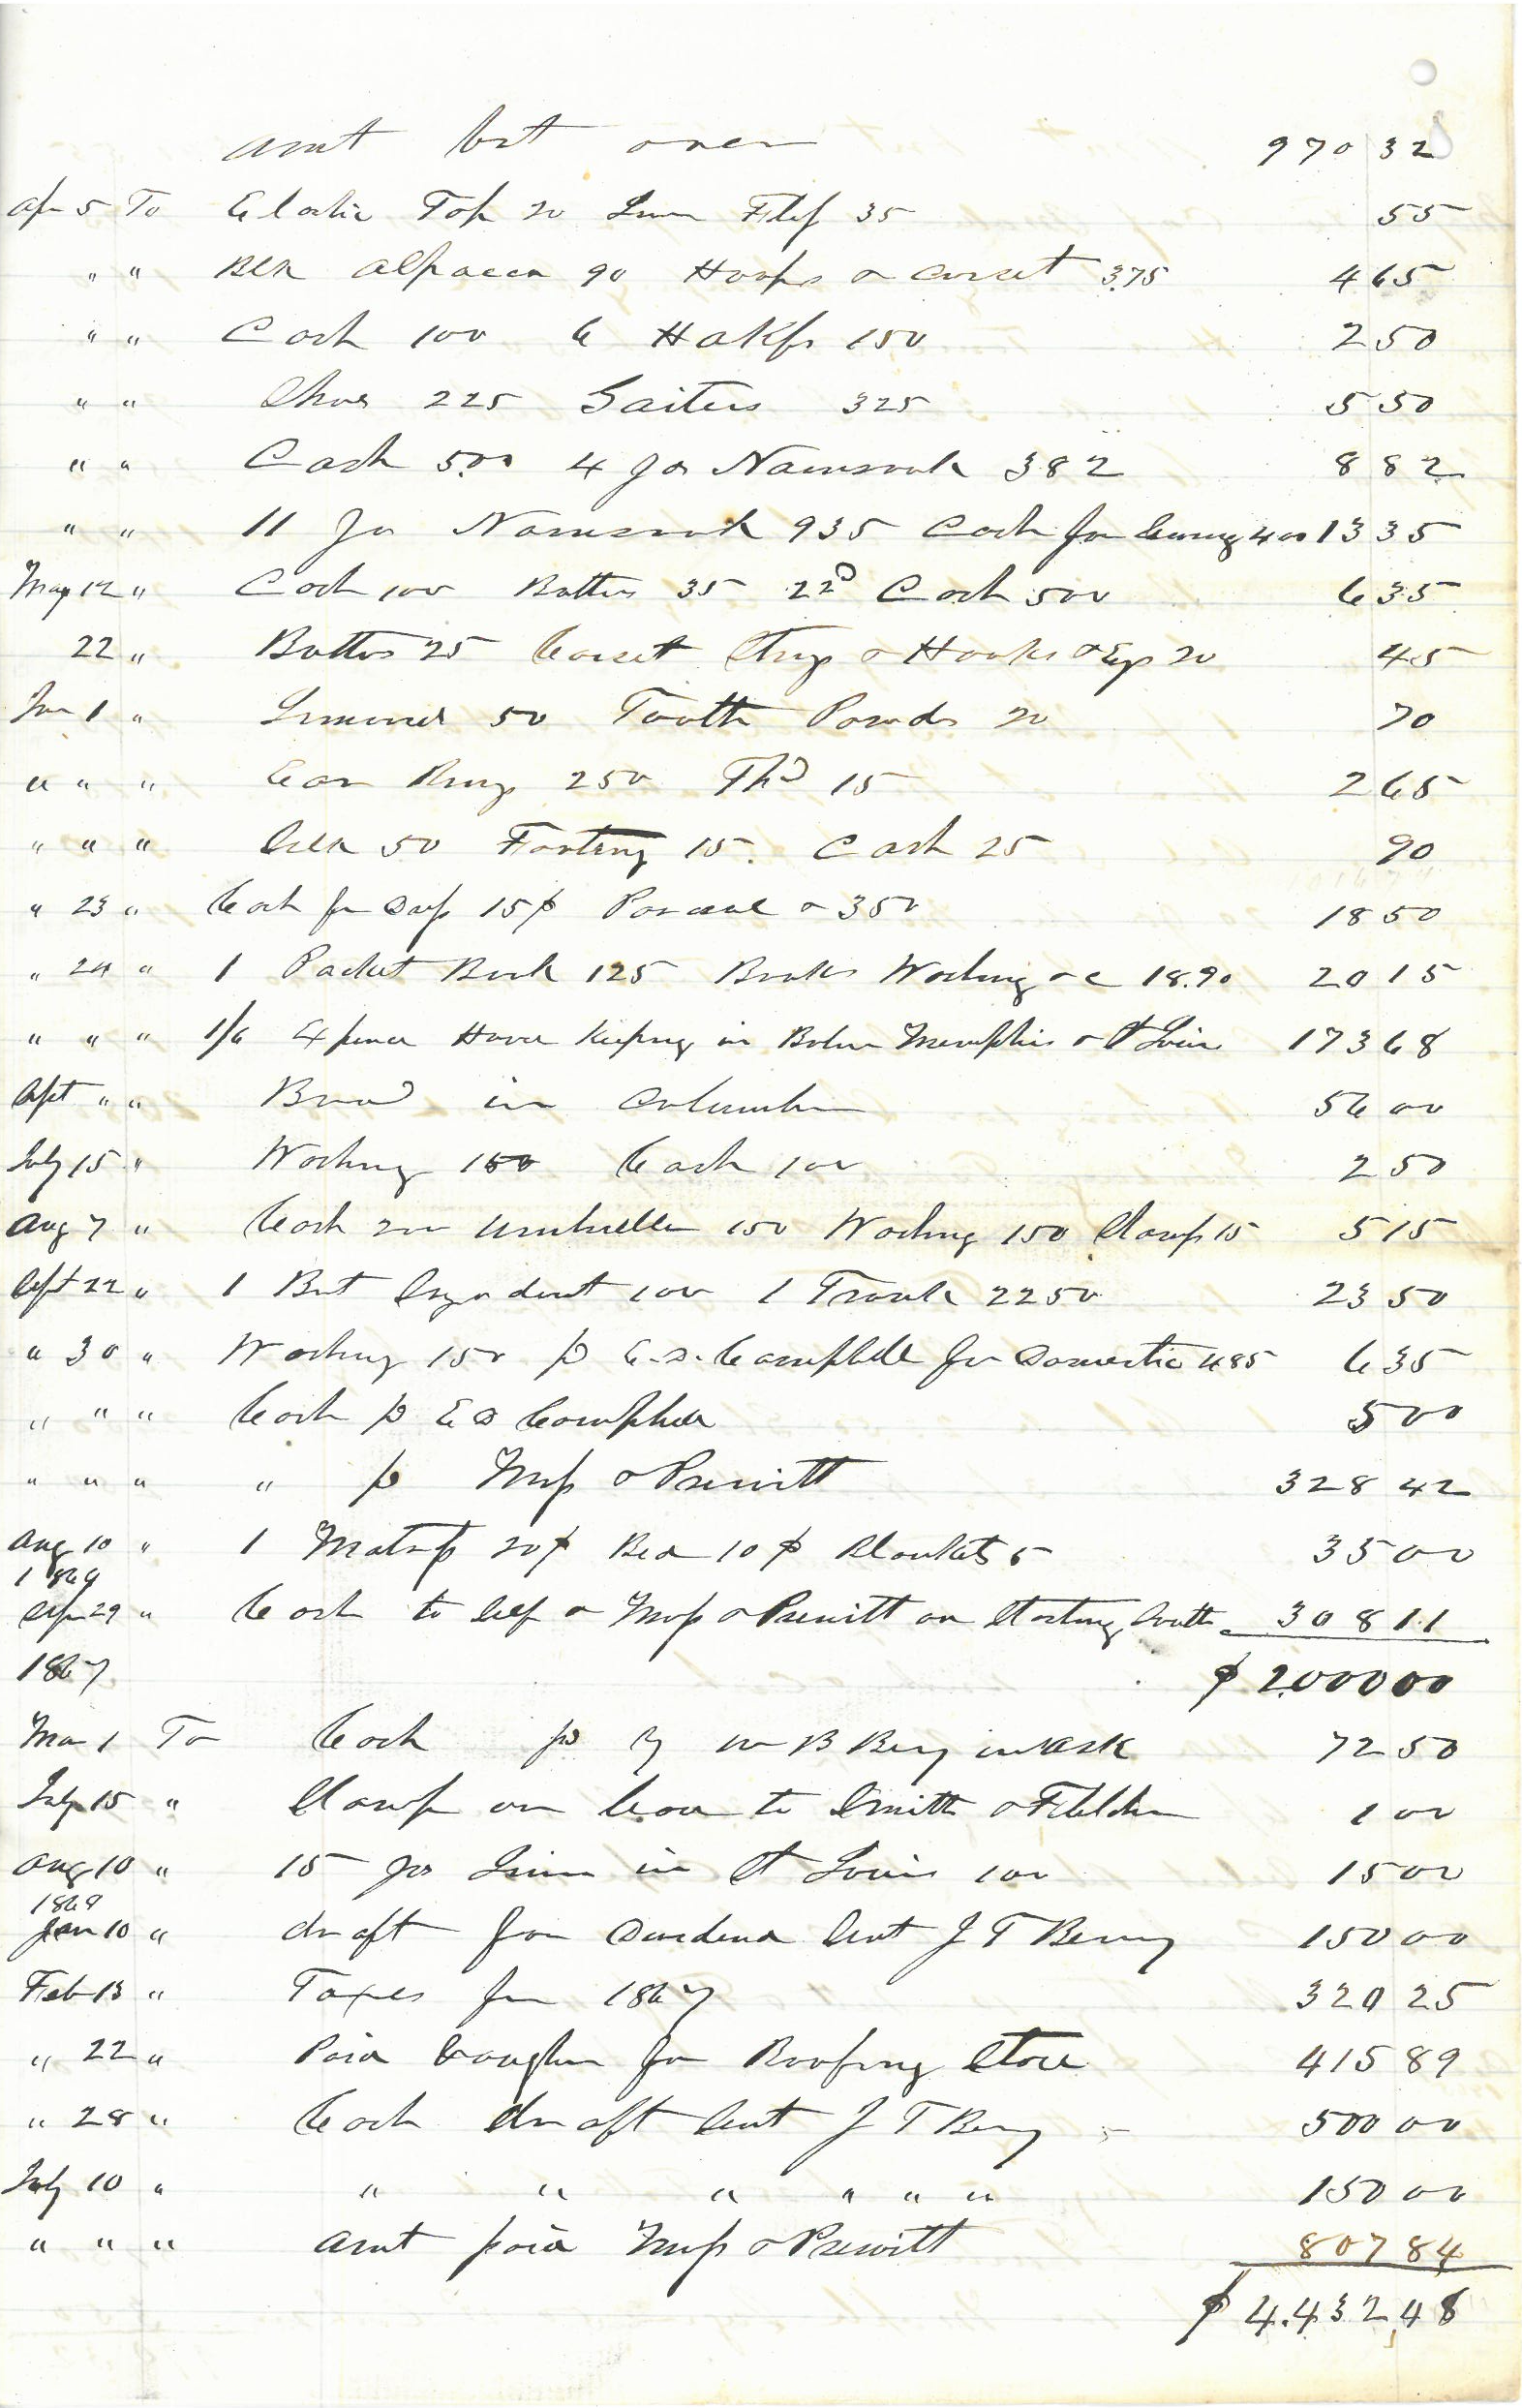 amt bot over 970 32
Apr 5 To Elastic Top 20 Linen Hkf 35 55
" " Blk Alpacca 90 Hoops & Corset 3.75 4 65
" " Cash 100 6 Hdkfs 150 2 50
" " Shoes 225 Gaiters 325 5 50
" " Cash 5.00 4 yds Nainsook 382 8 82
" " 11 yds Nainsook 935 Cash for 400 13 35
May 12 " Cash 100 Buttons 35 22d Cash 500 6 35
22 " Buttons 25 Corset Strings & Hooks & Eyes 20 45
Jun 1 " 50 Tooth Powder 20 70
" " " Ear Rings 250 Thd 15 2 65
" " " Silk 50 Footing 15. Cash 25 90
" 23 " Cash for 15$ Parasol & 350 18 50
" 24 " 1 Pocket Book 125 Books Washing &c 18.90 20 15
" " " 1/6 Expense House Keeping in Memphis & St Louis 173 68
Sept " " Board in Columbus 56 00
July 15 " Washing 150 Cash 100 2 50
Aug 7 " Cash 200 Umbrella 150 Washing 150 Stamps 15 5 15
Sept 22 " 1 Bot 100 1 Trunk 2250 23 50
" 30 " Washing 150 pd E. D. Campbell for Domestic 485 6 35
" " " Cash pd E D Campbell 5 00
" " " " pd Miss & Prewitt 328 42
Aug 10 " 1 Matress 20$ Bed 10$ Blankets 5 35 00
1869
29 " Cash to Self & Miss & Prewitt on Starting South 308 11
1867 $ 2,000 00
Mar 1 To Cash pd by Wm B Berry in Ark 72 50
July 15 " Stamp on to Smith & 1 00
Aug 10 " 15 yds Linen in St Louis 100 15 00
1869
Jan 10 " draft for Sent J T Berry 150 00
Feb 13 " Taxes for 1867 320 25
" 22 " Paid Vaughn for Roofing Store 415 89
" 28 " Cash draft Sent J T Berry 500 00
July 10 " " " " " " " 150 00
" " " Amt paid Miss & Prewitt 807 84
$ 4.432,48